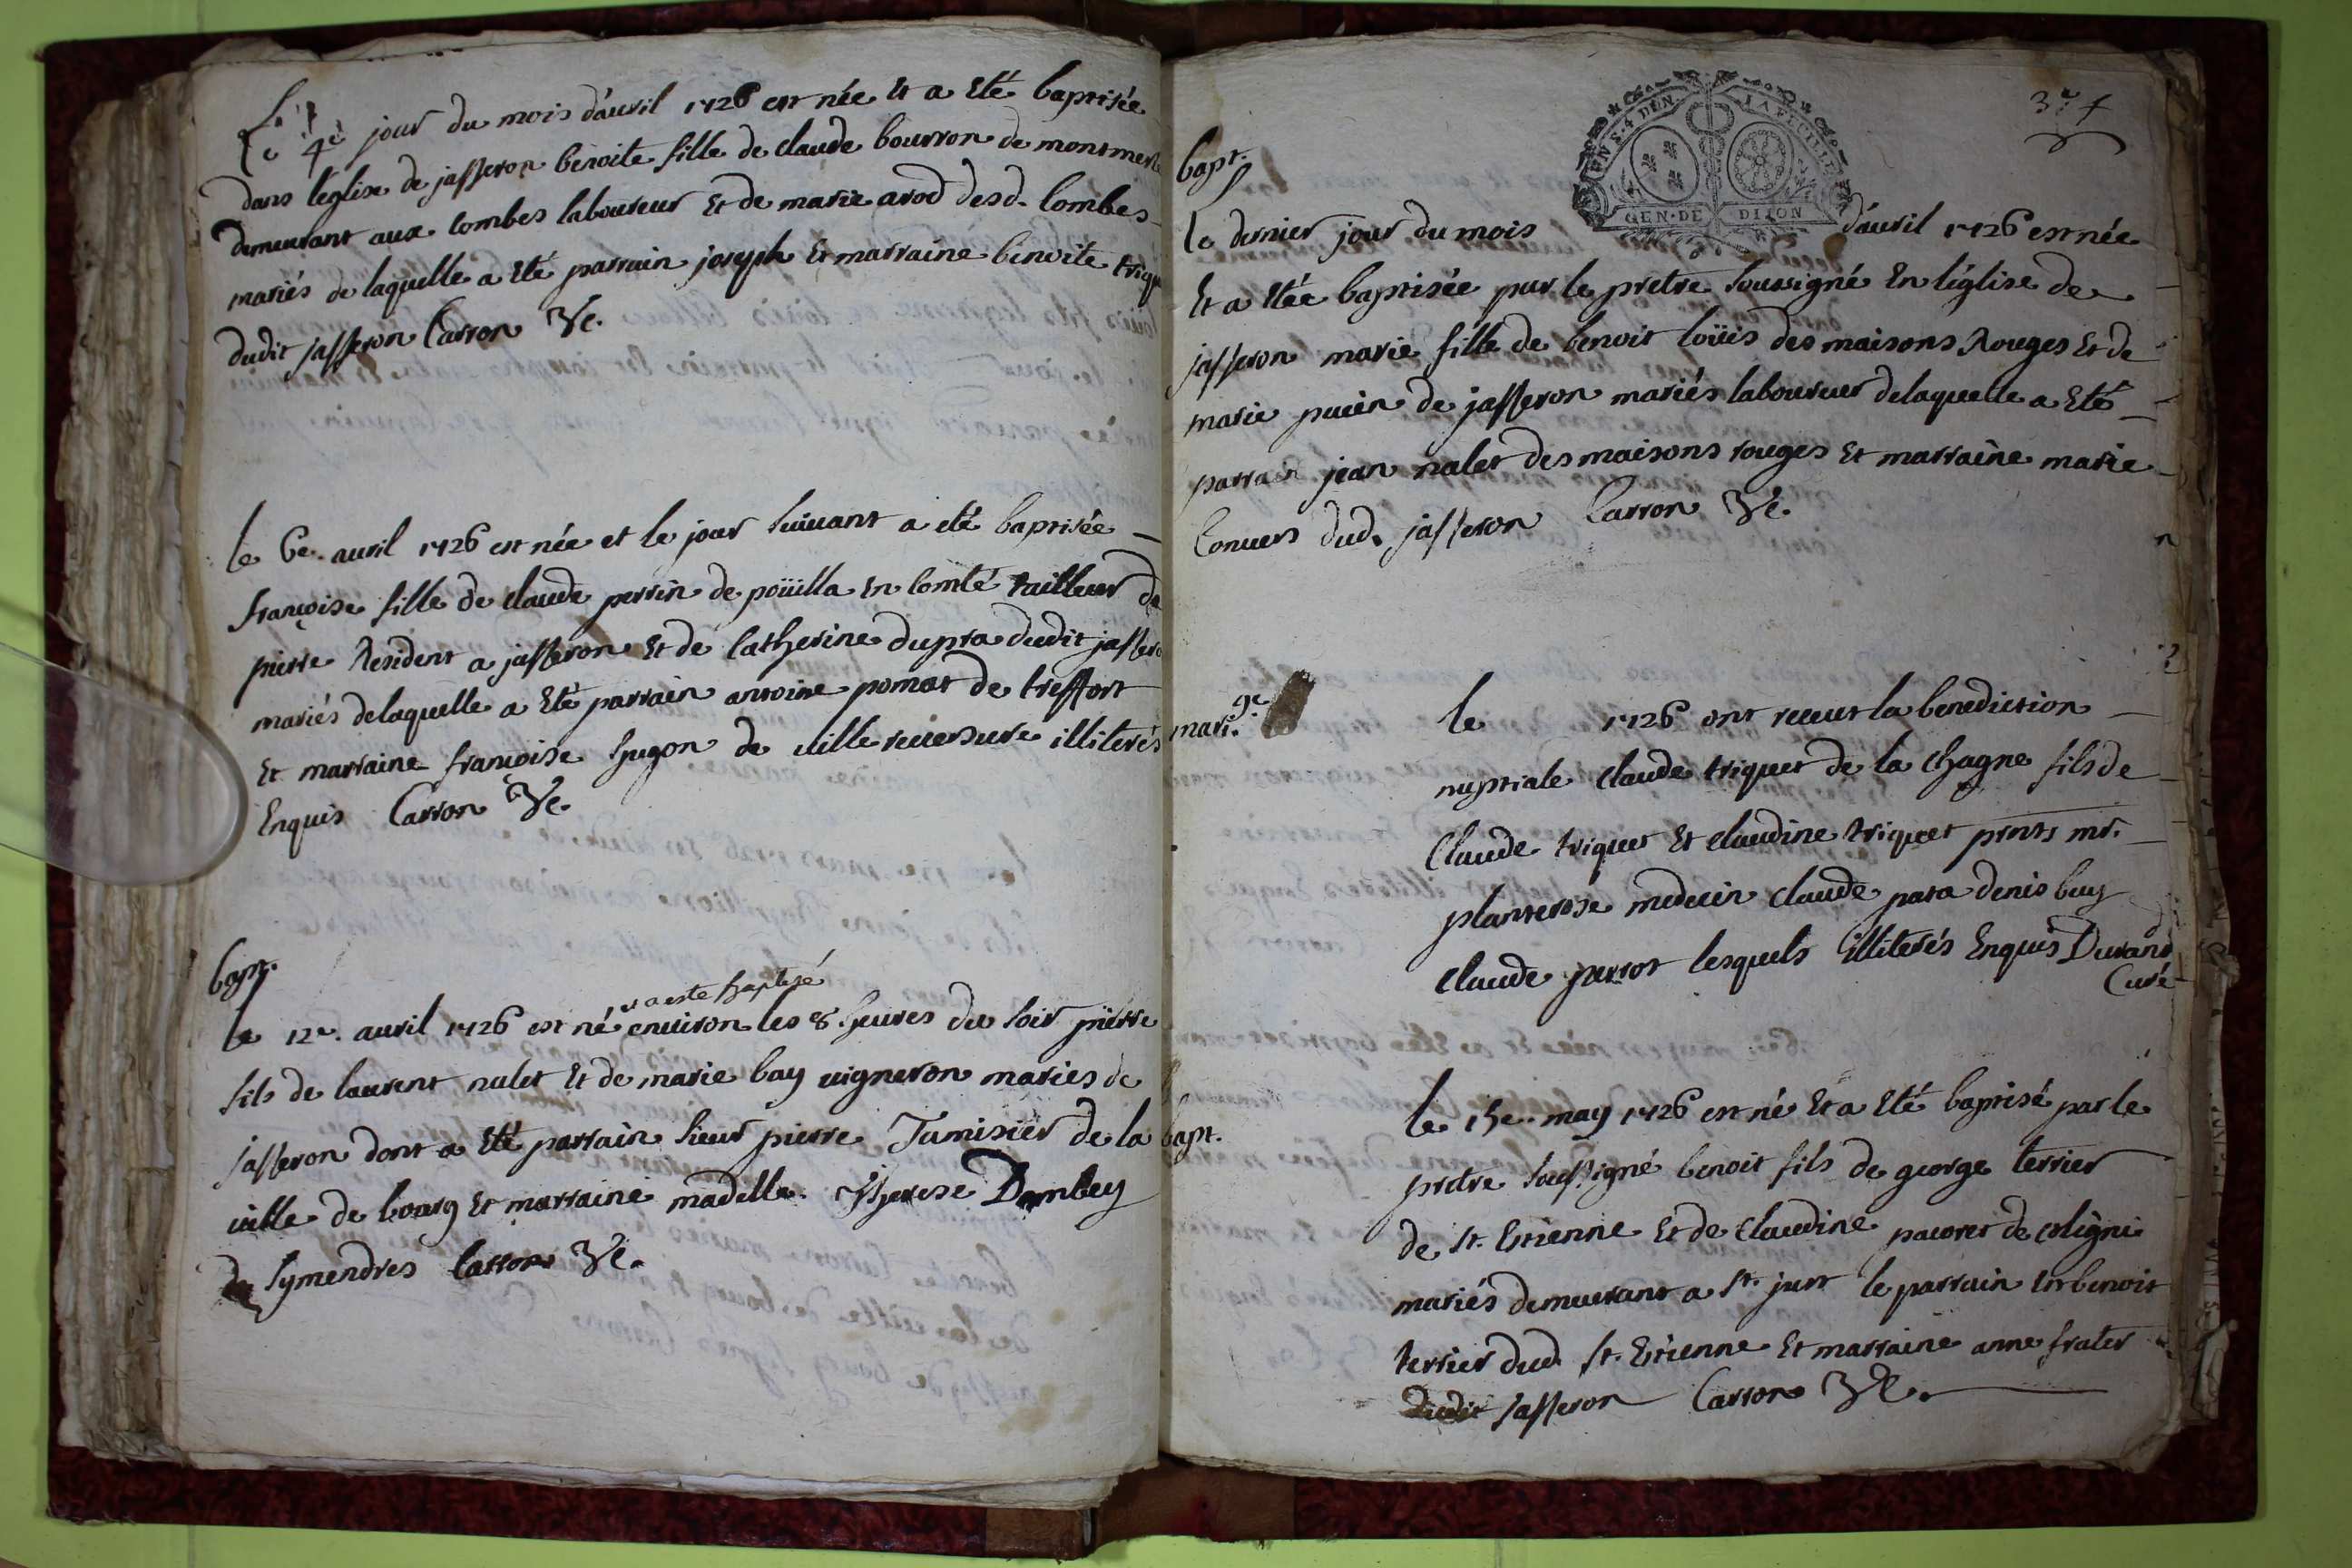 Le 4e jour du mois d'auril 1726 est née Et a Eté baptisée
dans l'église de jasseron benoite fille de claude bourron de montmerle
demeurant aux combes laboureur Et de marie arod desd. combes
mariés de laquelle a Eté parrain joseph Et marraine benoite
dudit jasseron Carron Ve.
le 6e. auril 1726 est née et le jour suiuant a eté baptisée
françoise fille de claude perrin de poüilla en Comté tailleur de
pierre Resident a jasseron Et de Catherine dupra dudit jasseron
mariés delaquelle a Eté parrain antoine pomat de treffort
Et marraine françoise hugon de uille reuersure illiterés
Enquis Carron Ve.
bapt.
et a este baptisé
le 12e. auril 1726 est né enuiron les 8 heures du soir pierre
fils de laurent nalet Et de marie bay uigneron mariés de
jasseron dont a Eté parrain sieur pierre Tamisier de la
uille de bourg Et marraine madelle. Therese Dambey
de Symendres Carron Ve.
3e f
EN S. 4 DEN. LA FEUILLE
GEN. DE DIJON
bapt.
le dernier jour du mois d'auril 1726 est née
Et a Etée baptisée par le pretre soussigné En l'église de
jasseron marie fille de benoit loüis des maisons Rouges Et de
marie puein de jasseron mariés laboureur delaquelle a Eté
parrain jean nalet des maisons rouges Et marraine marie
Conuers dud. jasseron Carron Ve.
mari.ge
le 1726 ont receut la benediction
nuptiale Claude triquet de la Chagne fils de
Claude triquet Et claudine triquet prnts mr.
planterose medecin Claude para denis buy
claude perrot lesquels illiterés Enquis Durand
Curé
bapt.
le 15e. may 1726 est né Et a Eté baptisé par le
pretre soussigné benoit fils de george terrier
de st. Estienne Et de Claudine pacoret de coligni
mariés demeurant a st. just le parrain Est benoit
terrier dud. st. Etienne Et marraine anne frater
dudit jasseron Carron Ve.